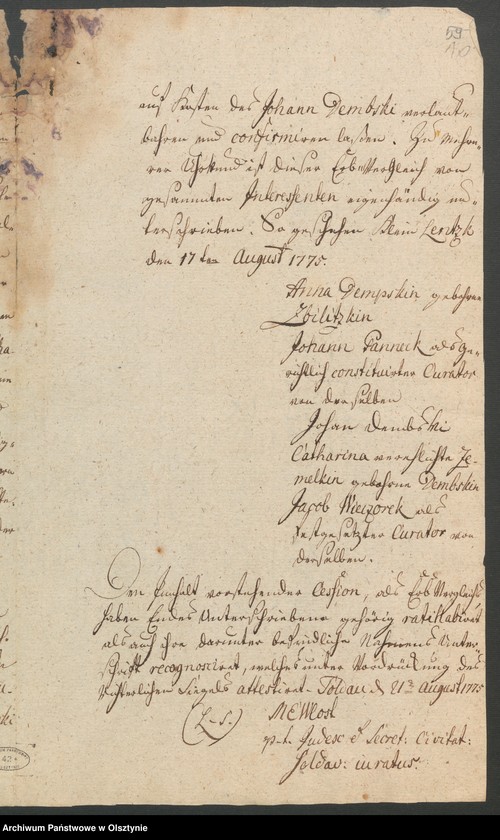 59
auf Kosten des Johann Dembski verlaut-
bahren und confirmiren laßen. Zu mehre-
rer Uhrkund ist dieser ErbVergleich von
gesammten Interessenten eigenhändig un-
terschrieben. So geschehen Klein Lentzk
den 17ten August 1775.
Anna Dempskin gebohrne
Zbilitzkin
Johann Panneck als ge-
richtlich constituirter Curator
von derselben
Johan Dembski
Catharina verehlichte Ze-
melkin gebohrne Dembskin
Jacob Wieczorek als
festgesetzter Curator von
derselben.
Den Inhalt vorstehender Cession, als ErbVergleichs
haben Endes Unterschriebene gehörig ratihabiret
als auch ihre darunter befindliche Nahmens Unter-
schrift recognosciret, welches unter Vordrückung des
Richterlichen Siegels attestiret. Soldau d 21ten August 1775
(L.S.)
p.t. Judex et Secret: Civitat:
Soldav: iuratus.
Archiwum Państwowe w Olsztynie